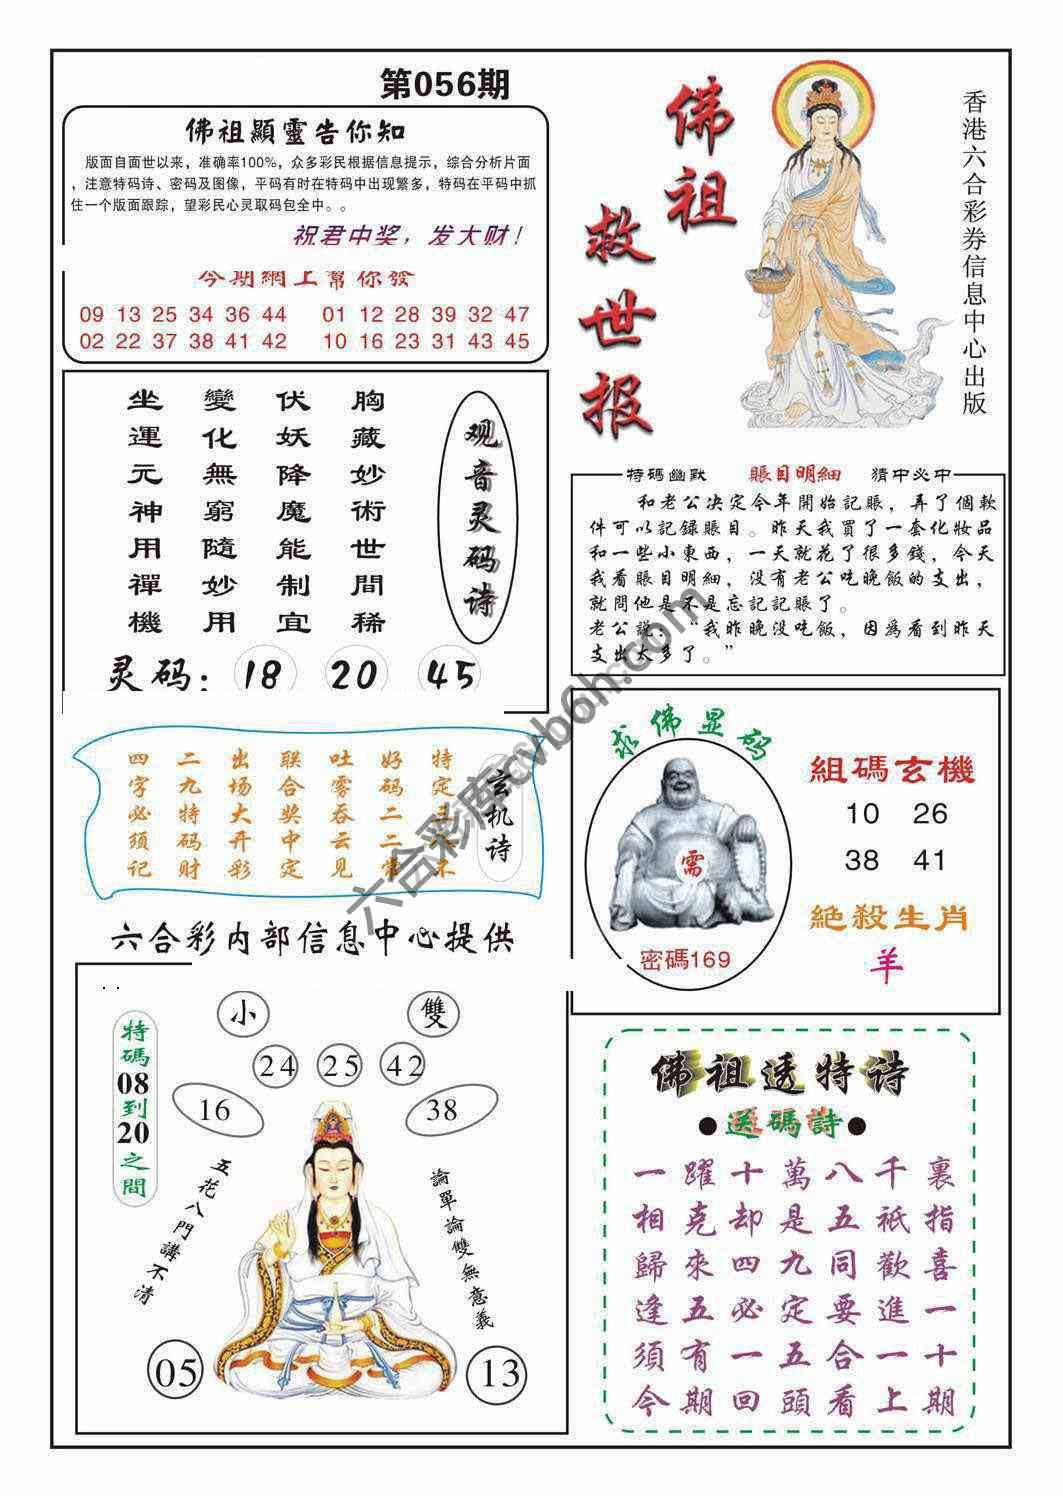 第056期
佛祖顯靈告你知
版面自面世以来，准确率100%，众多彩民根据信息提示，综合分析片面
，注意特码诗、密码及图像，平码有时在特码中出现繁多，特码在平码中抓
住一个版面跟踪，望彩民心灵取码包全中。。
祝君中奖，发大财！
今期網上幫你發
09 13 25 34 36 44 01 12 28 39 32 47
02 22 37 38 41 42 10 16 23 31 43 45
佛祖
救世报
香港六合彩券信息中心出版
观音灵码诗
胸藏妙術世間稀
伏妖降魔能制宜
變化無窮隨妙用
坐運元神用禪機
灵码：18 20 45
特碼幽默 賬目明細 猜中必中
和老公决定今年開始記賬，弄了個軟
件可以記録賬目。昨天我買了一套化妝品
和一些小東西，一天就花了很多錢，今天
我看賬目明細，没有老公吃晚飯的支出，
就問他是不是忘記記賬了。
老公説：“我昨晚没吃飯，因爲看到昨天
支出太多了。”
玄机诗
特定
不
好码二二常
吐雾吞云见
联合奖中定
出场大开彩
二九特码财
四字必须记
求佛显码
需
密碼169
組碼玄機
10 26
38 41
絶殺生肖
羊
六合彩内部信息中心提供
小 雙
24 25 42
16 38
特碼08到20之間
五花八門講不清
論單論雙無意義
05 13
佛祖透特诗
●送碼詩●
一躍十萬八千裏
相克却是五祇指
歸來四九同歡喜
逢五必定要進一
須有一五合一十
今期回頭看上期
六合彩库cvboh.com